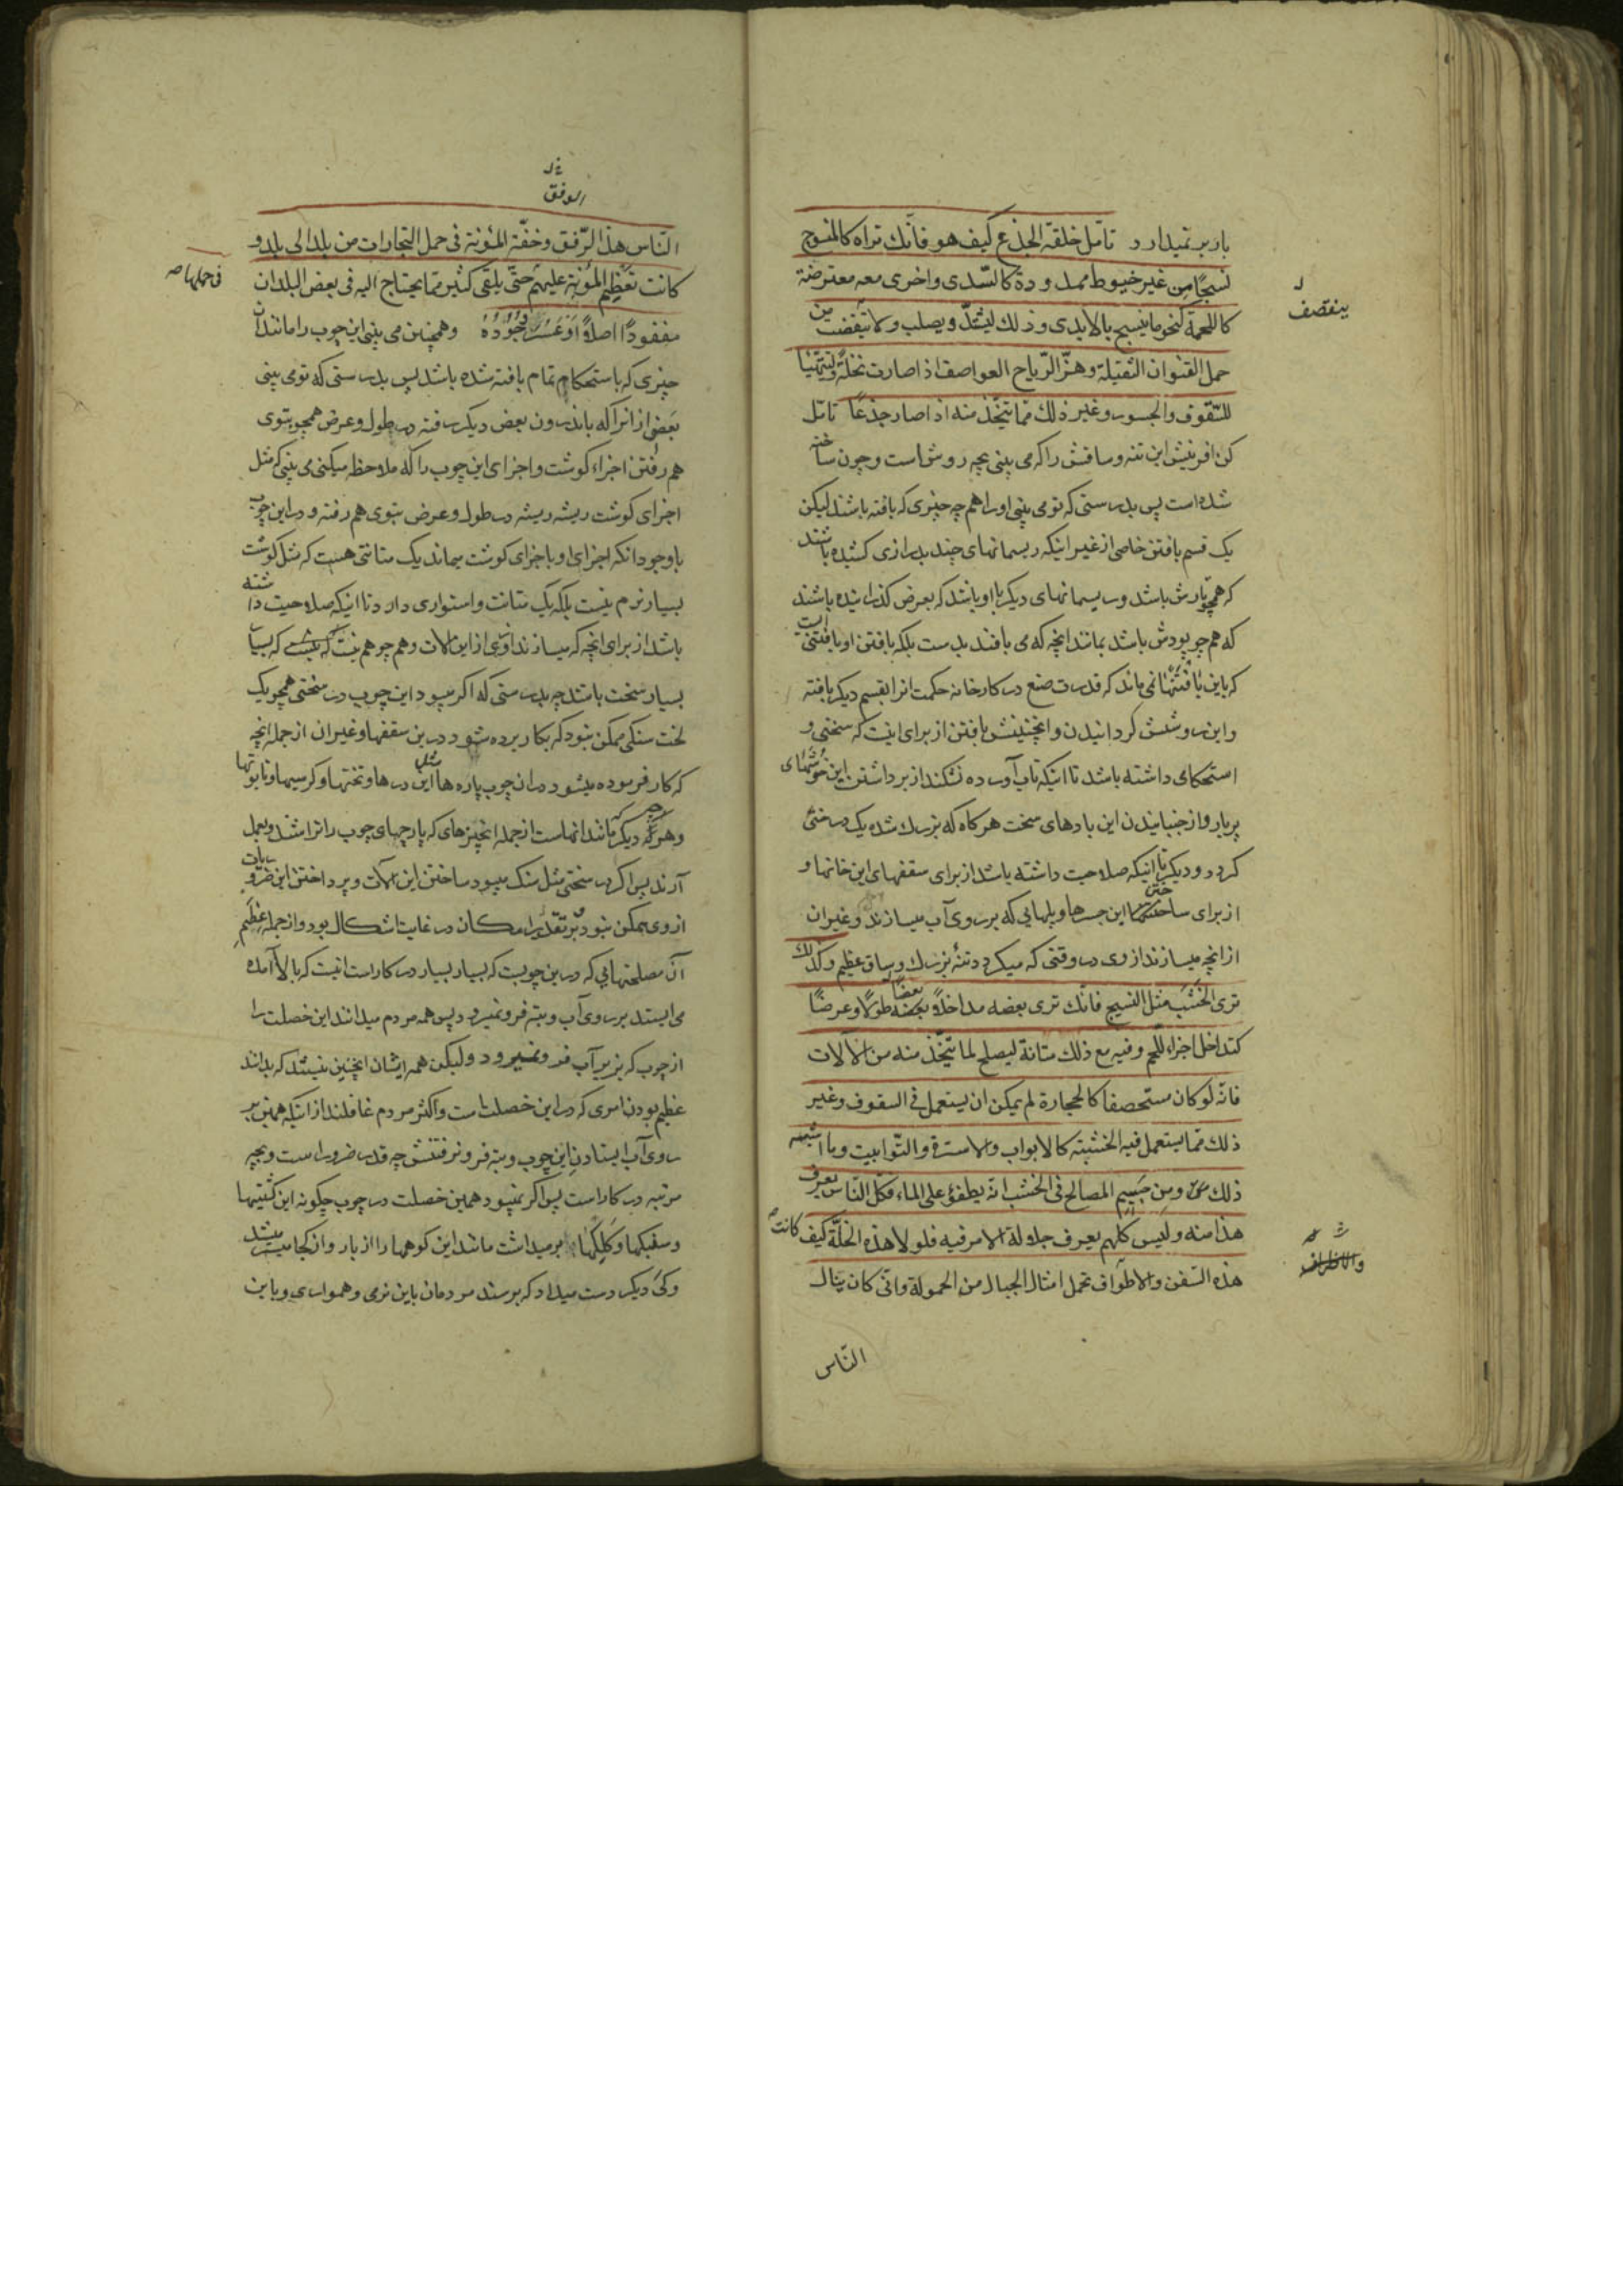 بار بر نمیدارد تامل خلقة الجذع کیف هو فانّك تراه کالمنسوج
نسجًا من غیر خیوط ممدودة کالسّدی واخری معه معترضة
کاللحمة کنحو ما ینسج بالایدی وذلك لیشتدّ ویصلب ولا یتقصف من
حمل القنوان الثقیلة وهزّ الرّیاح العواصف اذا صارت نخلة ولیتهیّأ
للسّقوف والجسور وغیر ذلك ممّا یتخّذ منه اذا صار جذعًا تامّل
کن افرینش این تنه وساقش را که می بینی بچه روش است وچون ساخته
شده است پس بدرستی که تو می بینی او را همچه چیزی که بافته باشند لیکن
یک قسم بافتن خاصی از غیر اینکه ریسمانهای چند بدرازی کشیده باشند
که همچو تارش باشد وریسمانهای دیگر با او باشد که بعرض گذرانیده باشند
که همچو پودش باشد بمانند انچه که می بافند بدست بلکه بافتن او بافتنی است
که باین بافتنها نمی ماند که قدرت صنع در کارخانه حکمت انرا بقسم دیگر بافته
واین روشش گردانیدن واینچنینش بافتن از برای اینست که سختی و
استحکامی داشته باشد تا اینکه تاب آورده نشکند از برداشتن این خوشهای
پربار واز جنبانیدن این بادهای سخت هرگاه که بزرک شده یک درختی
گردد ودیگر تا اینکه صلاحیت داشته باشد از برای سقفهای این خانها و
از برای ساختن این جسرها وپلهایی که بر روی آب میسازند وغیر ان
از انچه میسازند از وی در وقتی که میگردد تنهٔ بزرك وساق عظیم وکذلك
تری الخَشَبَ مثل النسیج فانّك تری بعضه مداخلاً بعضًا طولًا وعرضًا
کتداخل اجزاء اللّحم وفیه مع ذلك متانة لیصلح لما یتّخذ منه من الآلات
فانّه لو کان مستحصفا کالحجارة لم یمکن ان یستعمل فی السقوف وغیر
ذلك ممّا یستعمل فیه الخشبة کالابواب والاسترة والتّوابیت وما اشبه
ذلك ومن جسیم المصالح فی الخشب انّه یطفؤ علی الماء فکلّ النّاس یعرف
هذا منه ولیس کلّهم یعرف جلالة الامر فیه فلولا هذه الخلّة کیف کانت
هذه السّفن والاطواف تحمل امثال الجبال من الحمولة وانّی کان ینال
النّاس
ینقصف
والاظراف
الوفق
النّاس هذا الرّفق وخفّة المؤنة فی حمل التجارات من بلد الی بلد و
کانت تعظم المؤنة علیهم حتّی یلقی کثیر ممّا یحتاج الیه فی بعض البلدان
مفقودًا اصلاً او عَسُرَ وُجُودُهُ وهمچنین می بینی این چوب را مانند ان
چیزی که باستحکام تمام بافته شده باشد پس بدرستی که تو می بینی
بعض از انرا که باندرون بعض دیگر رفته در طول وعرض همچو بتوی
هم رفتن اجزاء گوشت واجزای این چوب را که ملاحظه میکنی می بینی که مثل
اجزای گوشت ریشه ریشه در طول وعرض بتوی هم رفته و در این چوب
با وجود انکه اجزای او باجزای گوشت بماند یک متانتی هست که مثل گوشت
بسیار نرم نیست بلکه یک متانت واستواری دارد تا اینکه صلاحیت داشته
باشد از برای انچه که میسازند از وی از این آلات وهمچو هم نیست که
بسیار سخت باشد چه بدرستی که اگر میبود این چوب در سختی همچو یک
لخت سنکی ممکن نبود که بکار برده شود در بن سقفها وغیر ان از جمله انچه
که کار فرموده میشود در ان چوب پاره ها مثل این درها وتختها وکرسیها وتابوتها
وهرچه دیگر مانند انهاست از جمله انچیزهای که پارچهای چوب را تراشند وبعمل
آرند پس اگر در سختی مثل سنک میبود ساختن این آلات وپرداختن این ضروریات
از وی ممکن نبود وبر تقدیر امکان در غایت اشکال بود واز جمله عظیم
آن مصلحتهایی که درین چوبست که بسیار بسیار در کار است انیست که بالا آمده
می ایستد بر روی آب وبته فرو نمیرود پس همه مردم میدانند این خصلت را
از چوب که بزیر آب فرو نمیرود ولیکن همه ایشان اینچنین نیستند که بدانند
عظیم بودن امری که در این خصلت است واکثر مردم غافلند از اینکه همین بر
روی آب ایستادن این چوب وبته فرو نرفتنش چه قدر ضرور است وبچه
مرتبه در کار است پس اگر نمیبود همین خصلت در چوب چگونه این کشتیها
وسفینکها وکَلَکها بر میداشت مانند این کوهها را از بار واز کجا میشد
وکی دیگر دست میداد که برسند مردمان باین نرمی وهمواری وباین
فی حملها صه